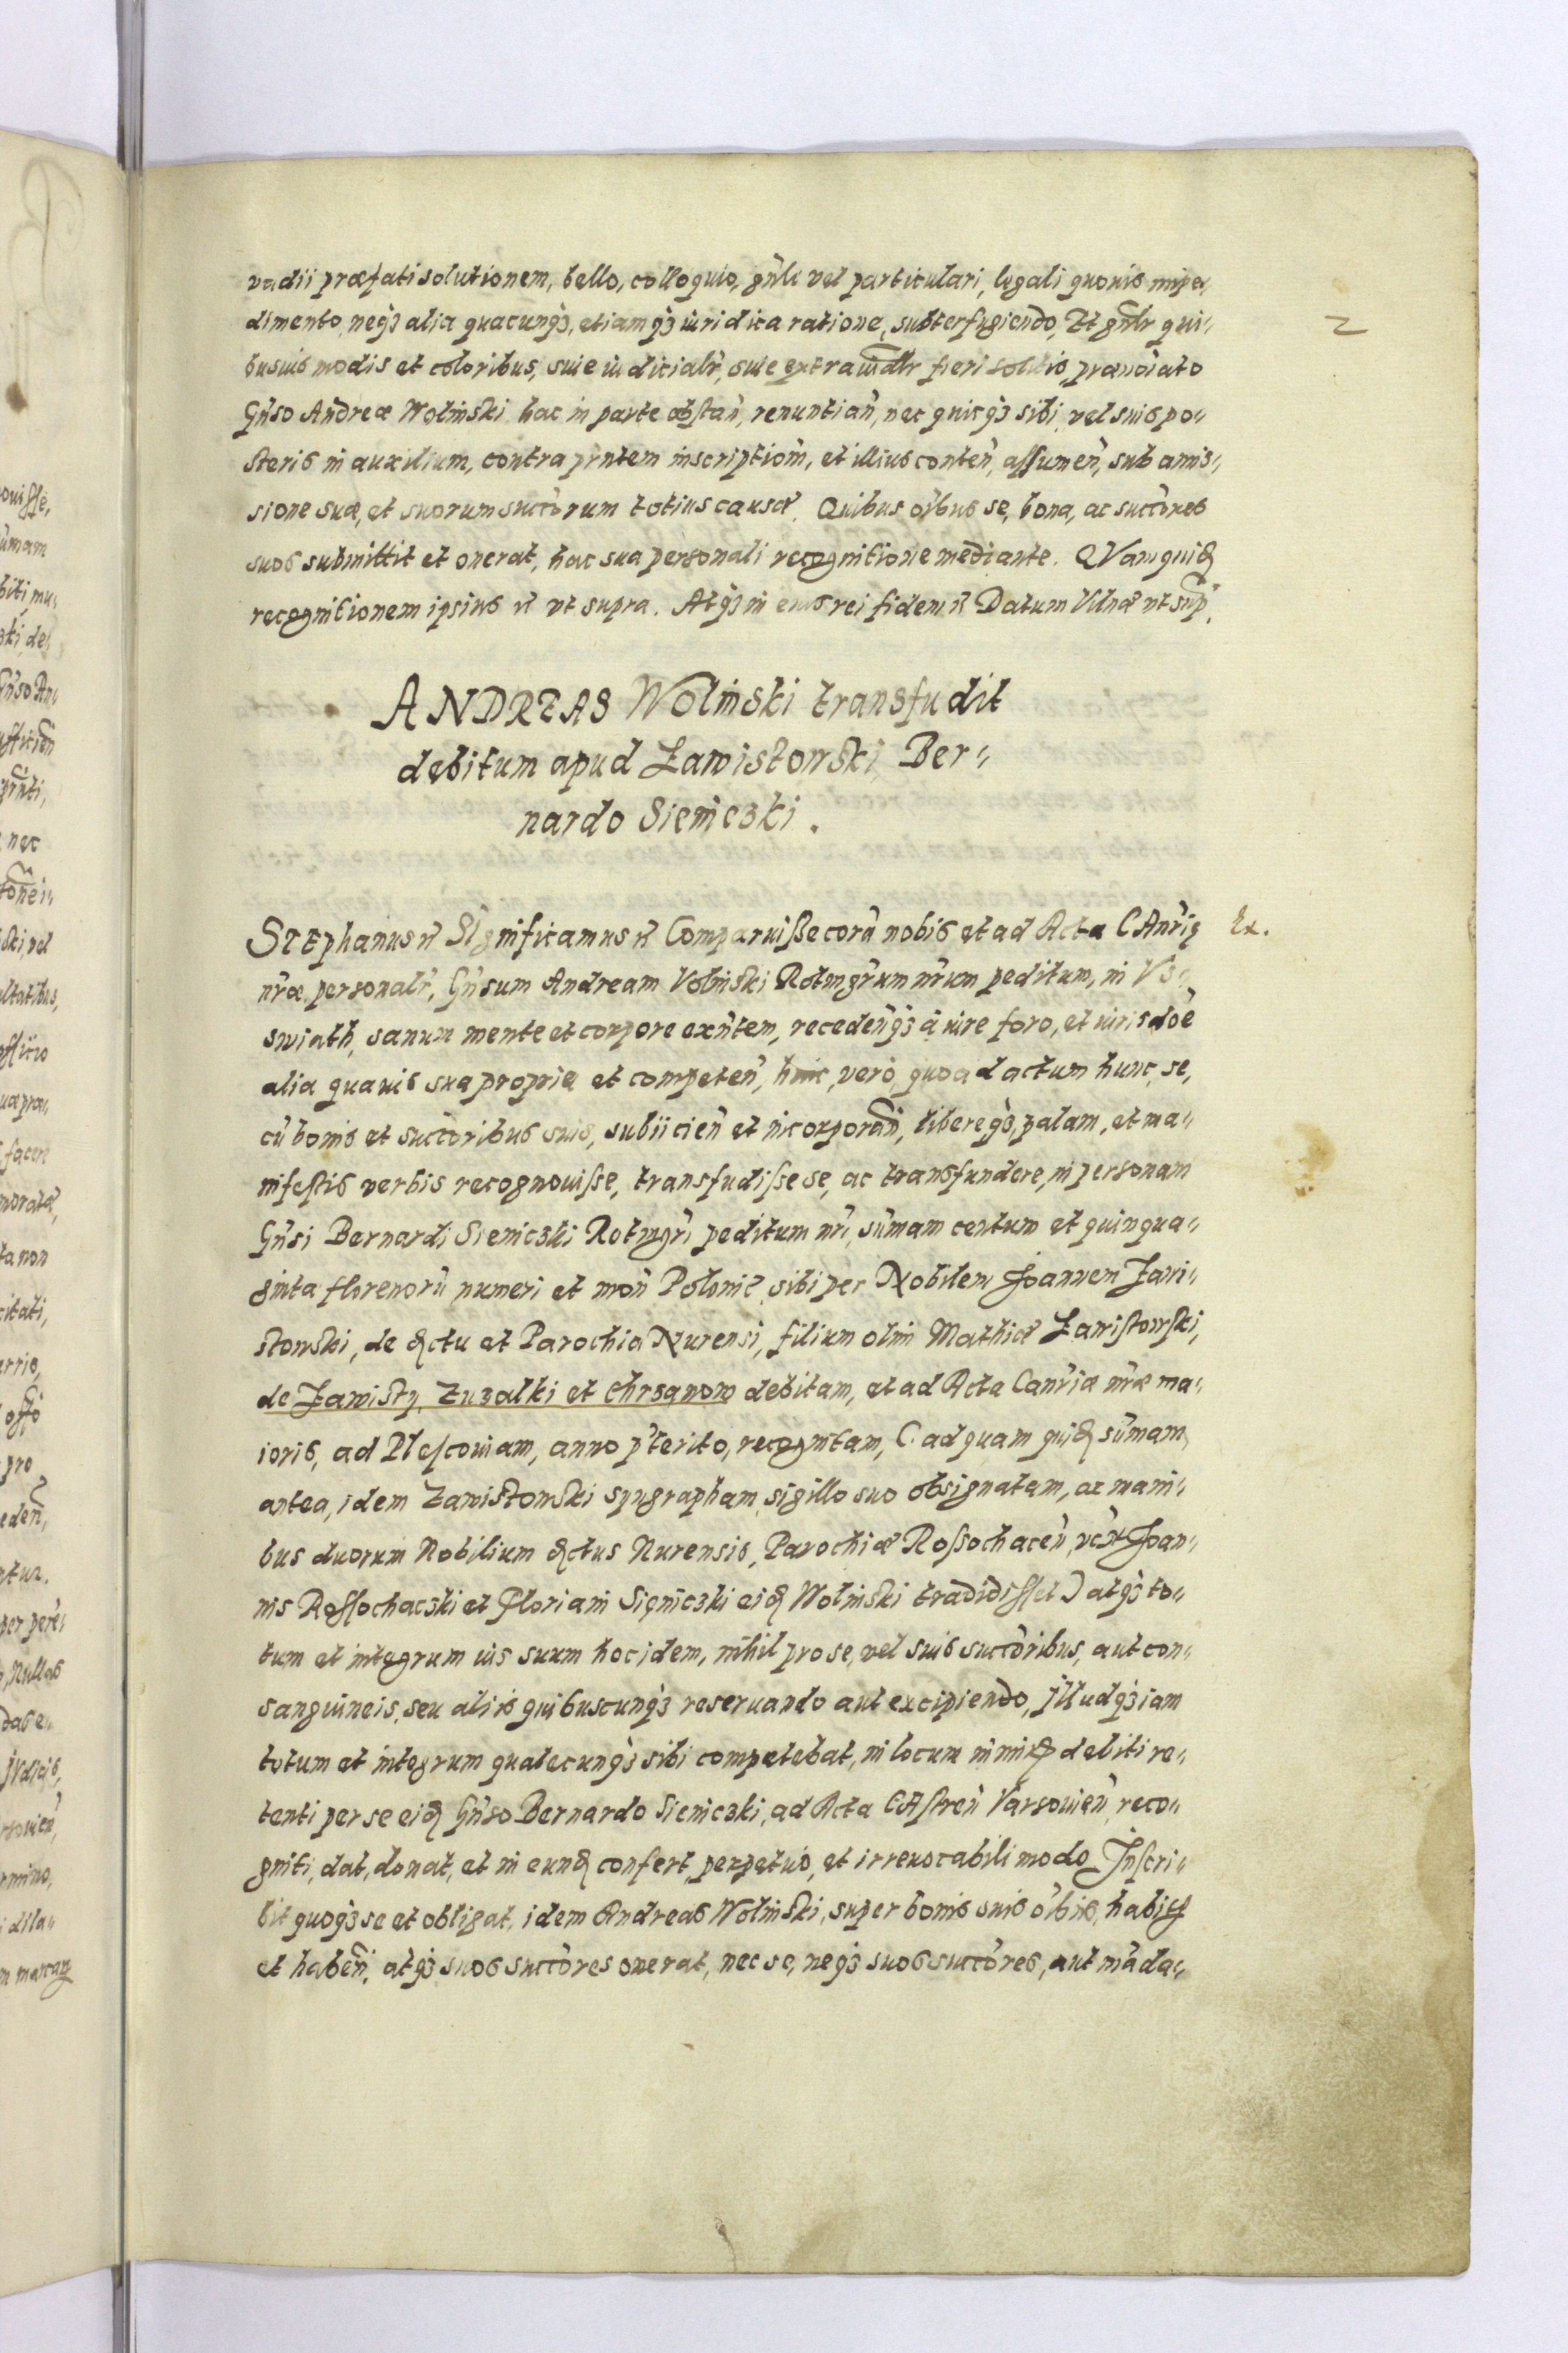 2
vadii præfati solutionem, bello, colloquio, gñli vel particulari, legali quouis impe„
dimento, neq3 alia quacunq3, etiamq3 iuridica ratione, subterfugiendo, Et gñlr qui„
busuis modis et coloribus, siue iudicialr, siue extraiudlr fieri solitis, prænoiato
Gñso Andreæ Wolinski hac in parte obstañ, renuntiañ, nec quicq3 sibi, vel suis po„
steris in auxilium, contra prñtem inscriptioñ, et illius conteñ, assumeñ, sub amis„
sione suæ, et suorum succõrum totius causæ. Quibus oibus se, bona, ac succõres
suos submittit et onerat, hac sua personali recognitione mediante. QVam quid
recognitionem ipsius rc vt supra. Atq3 in eius rei fidem rc Datum Vilnæ vt sup̃.
ANDREAS Wolinski transfudit
debitum apud Zawistowski, Ber„
nardo Sieniczki.
STEphanus rc SIgnificamus rc Comparuisse corã nobis et ad Acta CAñrię
ñræ personalr, Gñsum Andream Volinski Rotmgrum ñrum peditum, in Vs„
swiath, sanum mente et corpore exñtem, recedeñq3 à iure foro, et iurisdõe
alia quauis sua propria et competeñ, hinc, verò, quoad actum hunc, se,
cũ bonis et succõribus suis, subiicieñ et incorporañ, libereq3, palam, et ma„
nifestis verbis recognouisse, transfudisse se, ac transfundere, in personam
Gñsi Bernardi Sieniczki Rotmgri peditum ñri, sum̃am centum et quinqua„
ginta florenorũ numeri et moñ Polonic̃, sibi per Nobilem Joannem Zawi„
stowski, de dictu et Parochia Nurensi, filium olim Mathiæ Zawistowski,
de Zawisty, Zuzalki et Chrzanow debitam, et ad Acta Cañriæ ñræ ma„
ioris, ad Plescouiam, anno p̃terito, recognitam, ( ad quam quid sum̃am,
antea, idem Zawistowski syngrapham, sigillo suo obsignatam, ac mani„
bus duorum Nobilium dictus Nurensis, Parochiæ Rossochaceñ, vczt Joan„
nis Rossochaczki et Floriani Sieniczki eid Wolinski tradidisset ) atq3 to„
tum et integrum ius suum hoc idem, nihil pro se, vel suis succõribus, aut con„
sanguineis, seu aliis quibuscunq3 reseruando aut excipiendo, Illudq3 iam
totum et integrum qualecunq3 sibi competebat, in locum debiti re„
tenti per se eid Gñso Bernardo Sieniczki, ad Acta CAstreñ Varsouieñ, reco„
gniti, dat, donat, et in eund confert, perpetuò, et irreuocabili modo. Inscri„
bit quoq3 se et obligat, idem Andreas Wolinski, super bonis suis oibus, habis
et habeñ, atq3 suos succõres onerat, nec se, neq3 suos succõres, aut mãda„
Ex.